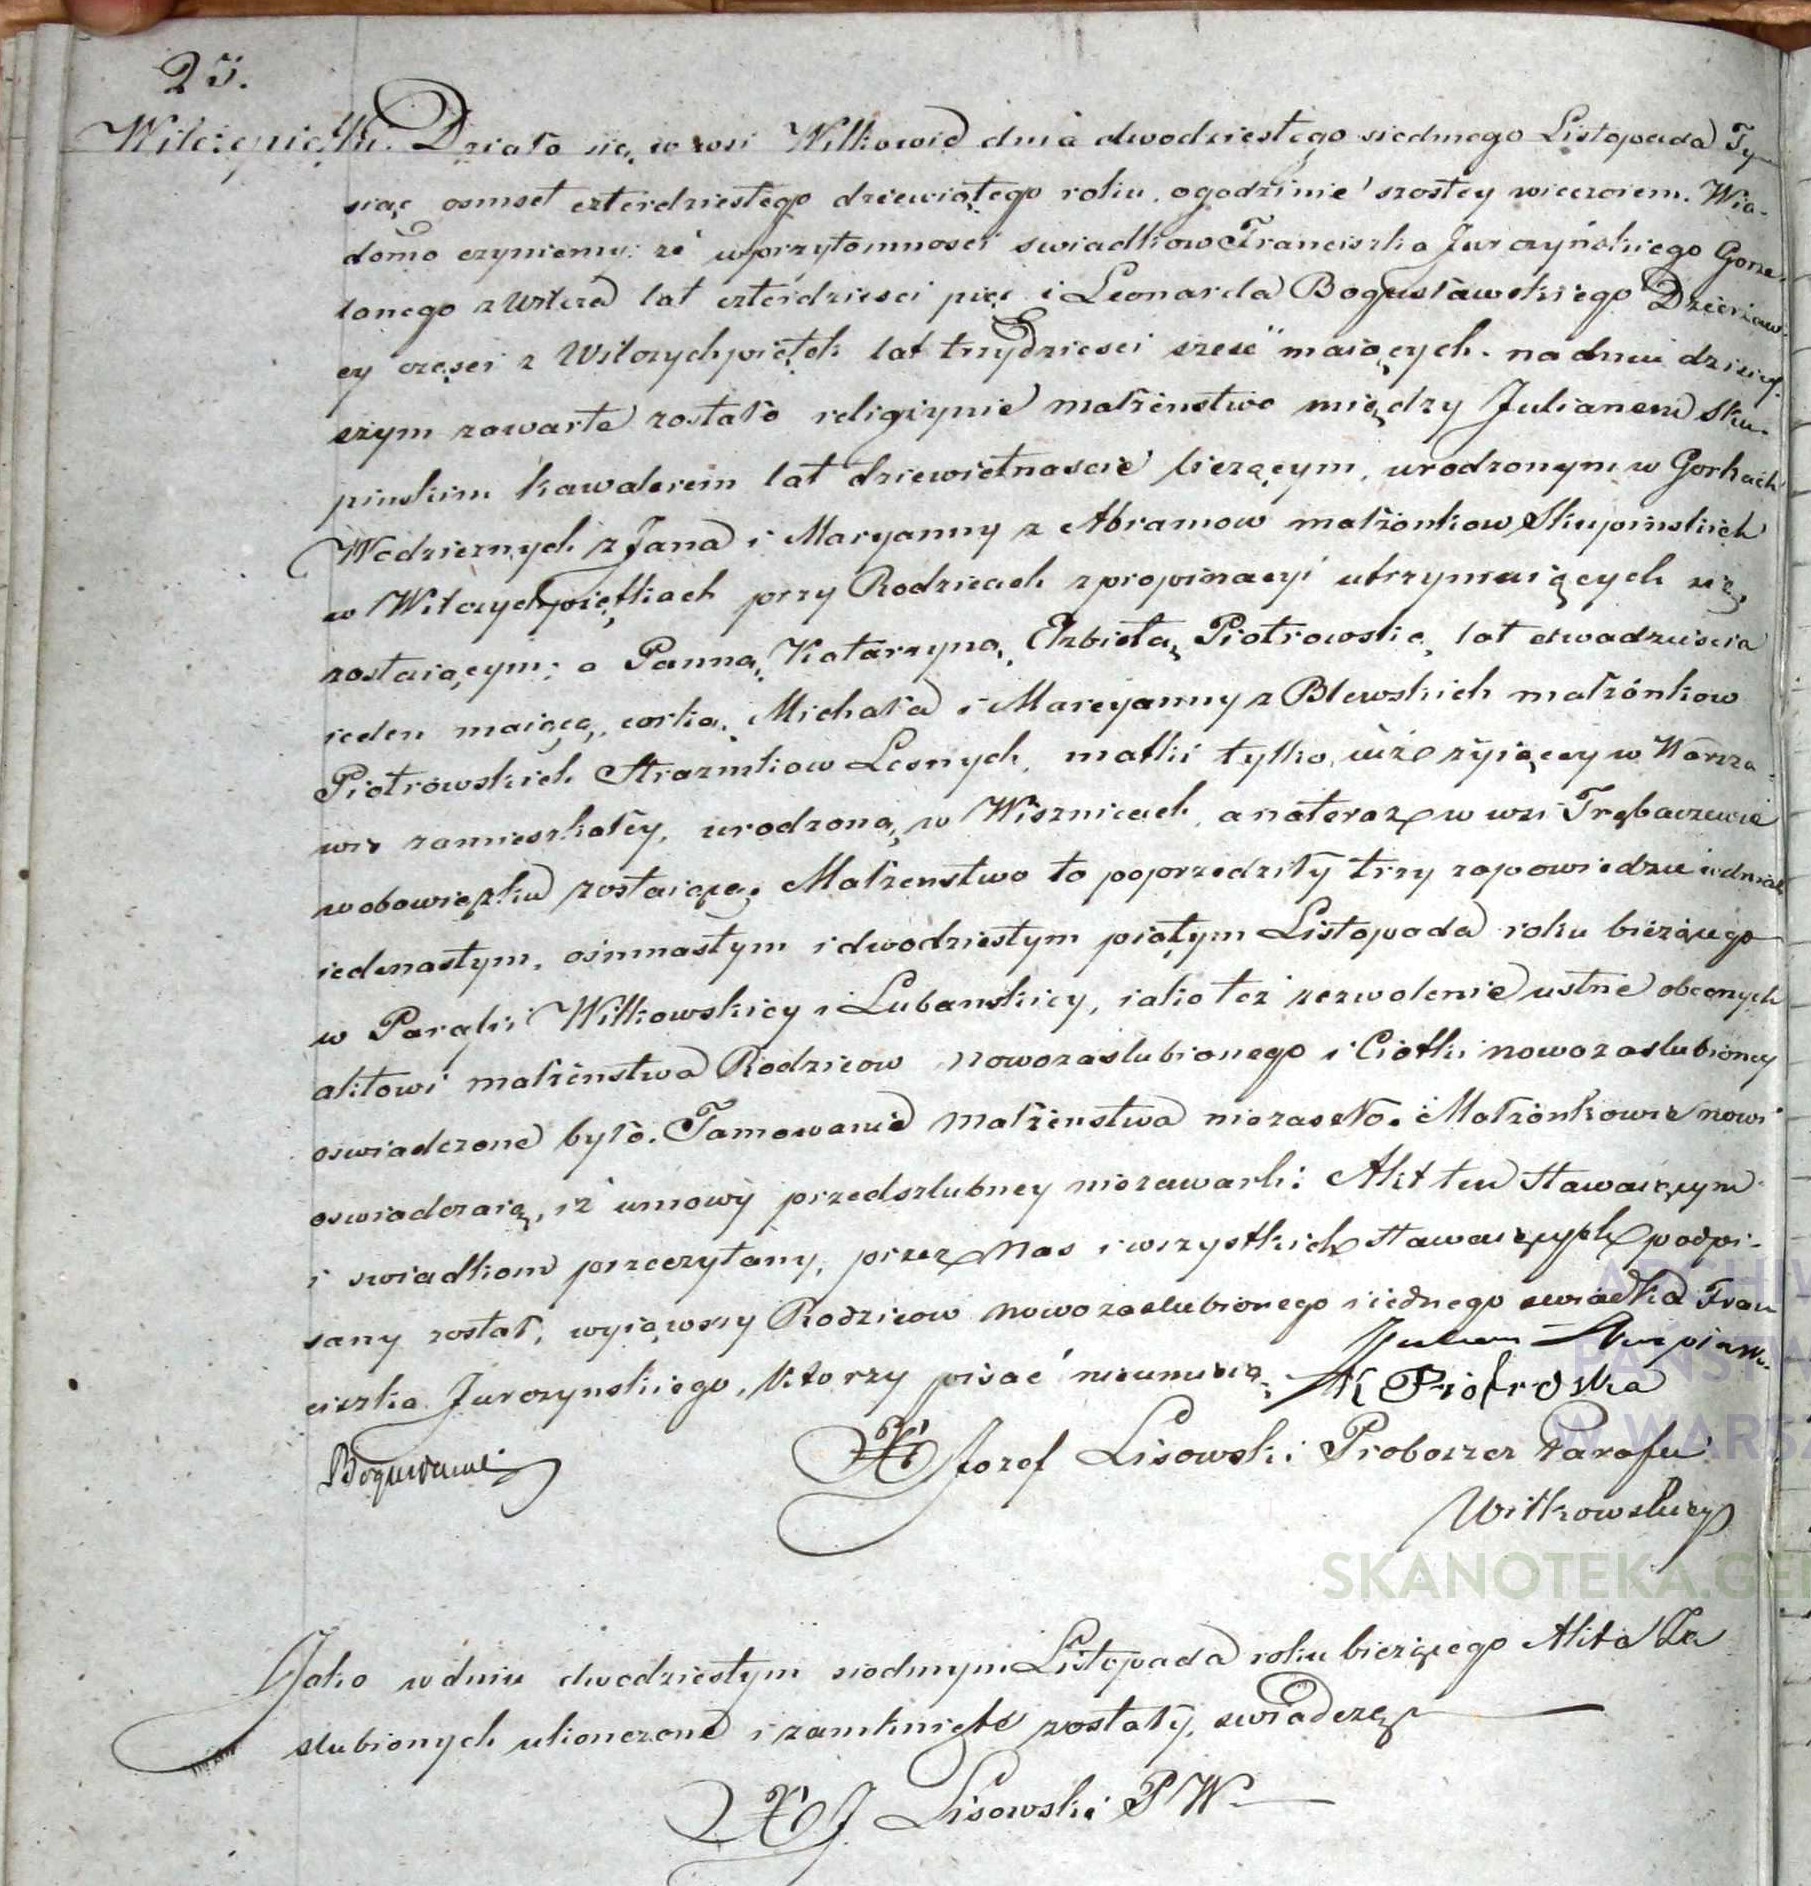 25.
Wilczepiętki. Działo się w wsi Wilkowie dnia dwodziestego siedmego Listopada Ty-
siąc osmset czterdziestego dziewiątego roku, o godzinie szostey wieczorem. Wia-
domo czyniemy: że w przytomnosci swiadkow Franciszka Jurczyńskiego Gorze-
lanego z Wilcza lat czterdziesci pięć i Leonarda Bogusławskiego Dzierżaw-
cy częsci z Wilczychpiętek lat trzydziesci szesć maiących. na dniu dzisiey-
szym zawarte zostało religiynie małżenstwo między Julianem Sku-
pinskim kawalerem lat dziewiętnascie liczącym, urodzonym w Gorkach
Wodzicznych z Jana i Maryanny z Abramow małżonkow Skupinskich
w Wilczychpiętkach przy Rodzicach z propinacyi utrzymuiących się,
zostaiącym; a Panną Katarzyną Elzbietą Piotrowską, lat dwadziescia
ieden maiącą, corką Michała i Maryanny z Blewskich małżonkow
Piotrowskich Strażnikow Lesnych, matki tylko iuż żyiącey w Warsza-
wie zamieszkałey, urodzoną w Wisznicach, a na teraz w wsi Trębaczewie
w obowiązku zostaiącą. Małżenstwo to poprzedziły trzy zapowiedzie w dniach
iedenastym, osimnastym i dwodziestym piątym Listopada roku bieżącego
w Parafii Wilkowskiey i Lubanskiey, iako też zezwolenie ustne obecnych
aktowi małżenstwa Rodzicow nowozaslubionego i Ciotki nowozaslubioney
oswiadczone było. Tamowanie Małżenstwa niezaszło. Małżonkowie nowi
oswiadczaią, iż umowy przedszlubney niezawarli: Akt ten stawaiącym
i swiadkom przeczytany, przez Nas i wszystkich stawaiących podpi-
sany został, wyiąwszy Rodzicow nowozaslubionego i iednego swiadka Fran
ciszka Jurczynskiego, ktorzy pisać nieumieią. Julian Skupinski
K Piotroska
Bogusławski X Jozef Lisowski Proboszcz Parafii
Wilkowskiey
Jako w dniu dwodziestym siodmym Listopada roku bieżącego Akta Za
slubionych ukonczone i zamknięte zostały, swiadczę
X J Lisowski P W
ARCHIW
PAŃSTW
W WARSZ
SKANOTEKA.GE